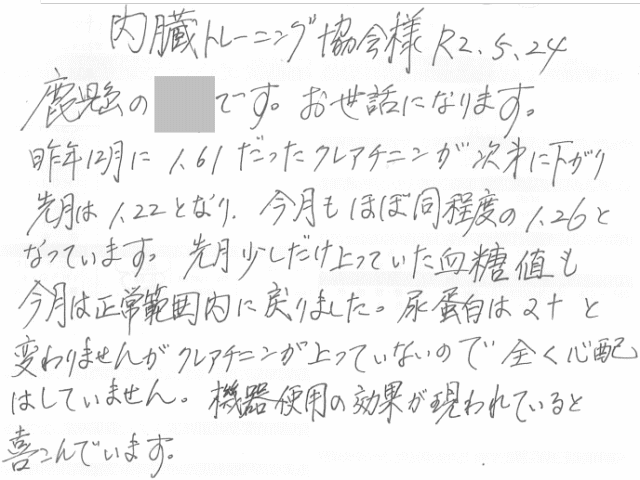 内臓トレーニング協会様 R2.5.24
鹿児島の です。お世話になります。
昨年12月に 1.61 だったクレアチニンが次第に下がり
先月は 1.22 となり、今月もほぼ同程度の 1.26 と
なっています。先月少しだけ上っていた血糖値も
今月は正常範囲内に戻りました。尿蛋白は 2+ と
変わりませんがクレアチニンが上っていないので全く心配
はしていません。機器使用の効果が現われていると
喜こんでいます。